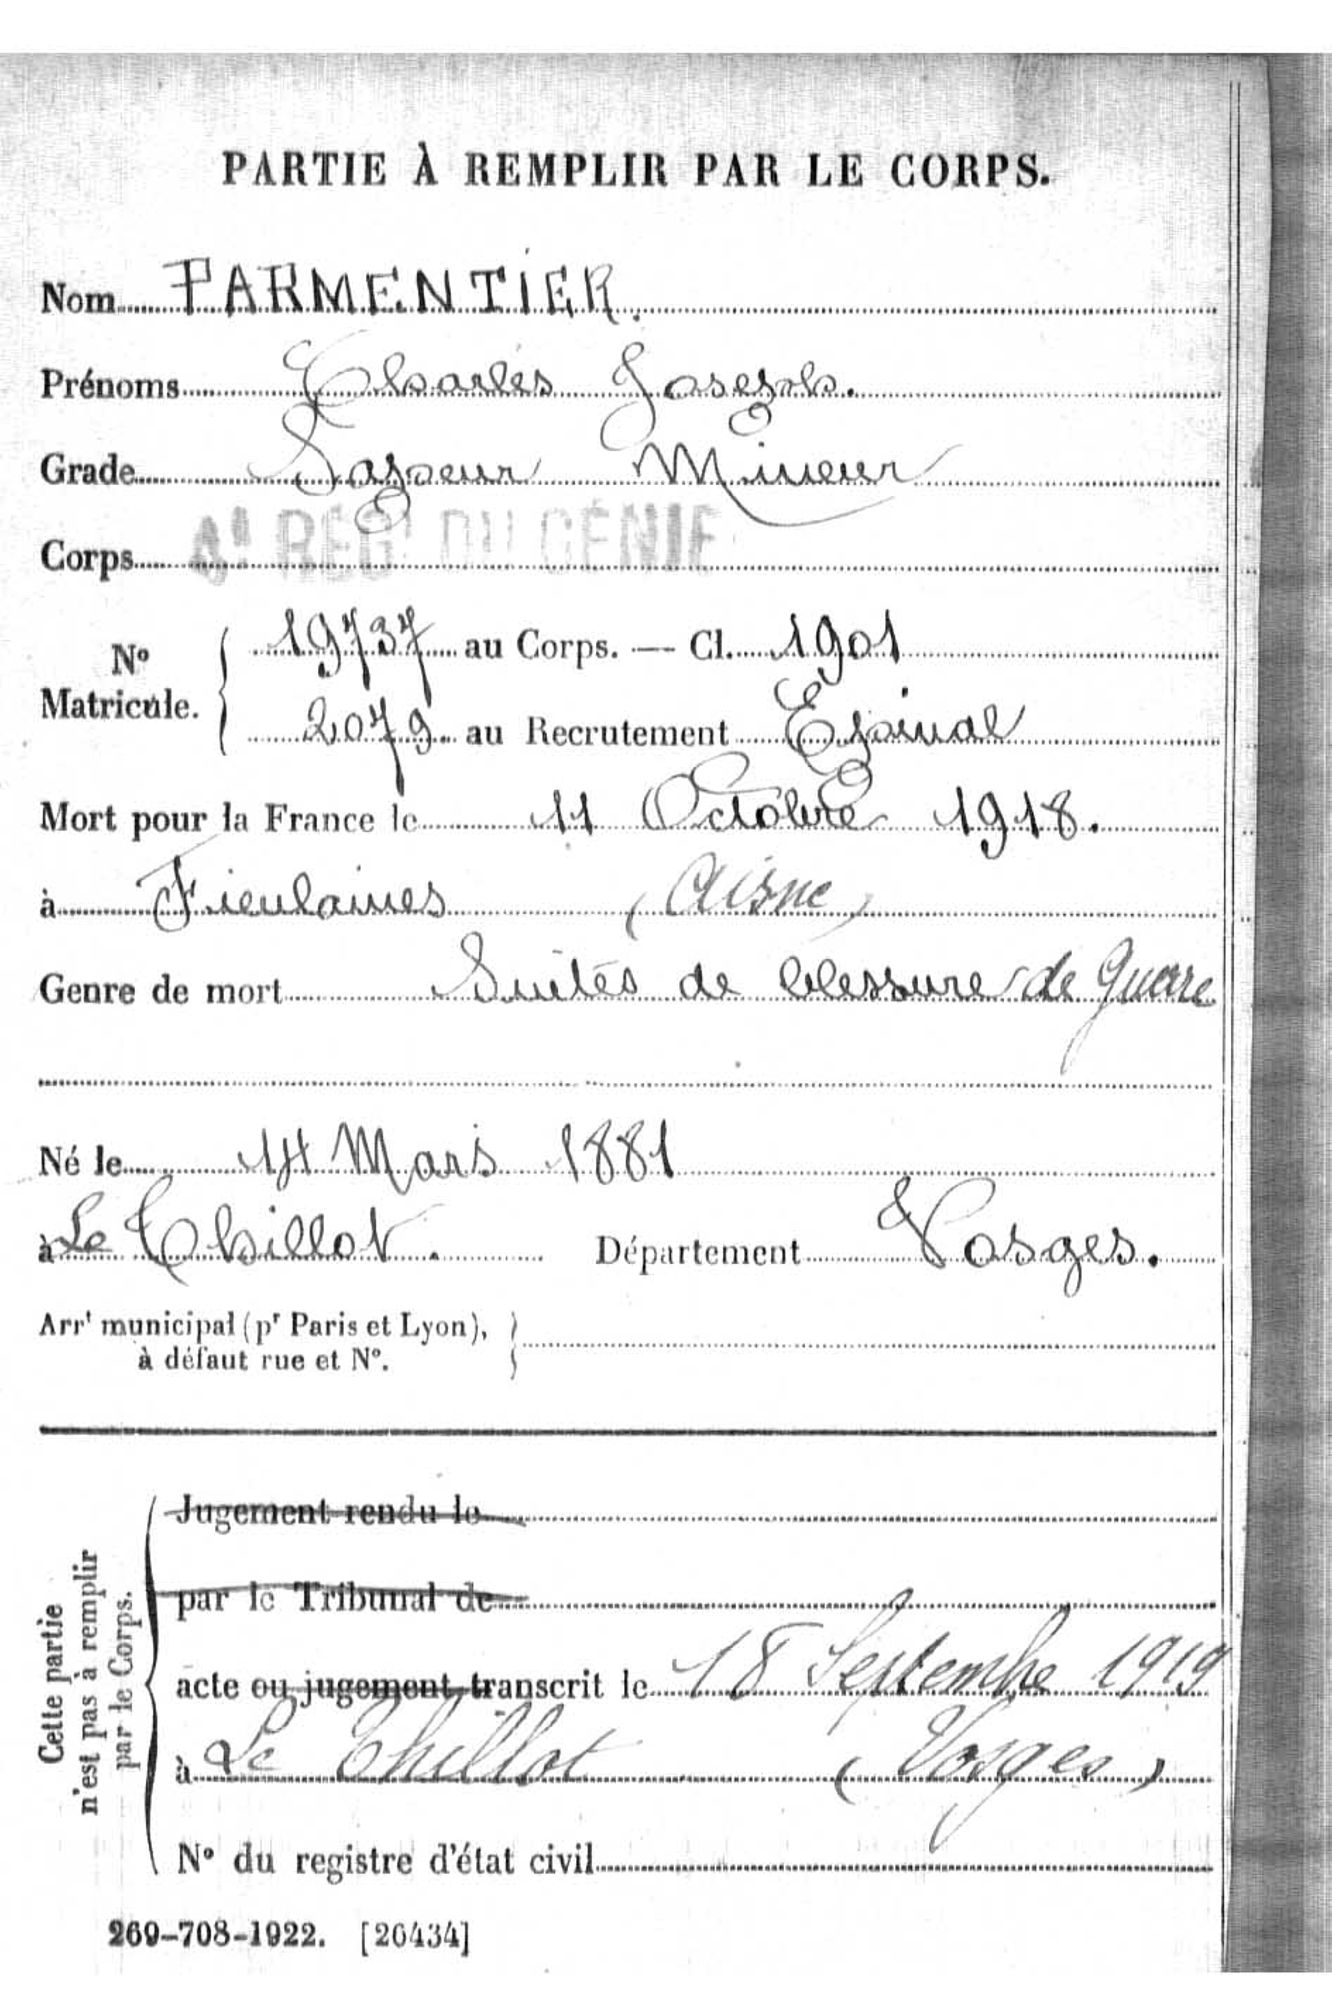 PARTIE À REMPLIR PAR LE CORPS.
Nom PARMENTIER.
Prénoms Charles Joseph.
Grade Sapeur Mineur
Corps 4e RÉGt DU GÉNIE
No Matricule. { 19737 au Corps. — Cl. 1901
2079 au Recrutement Epinal
Mort pour la France le 11 Octobre 1918.
à Fieulaines (Aisne)
Genre de mort Suites de blessure de Guerre
Né le 14 Mars 1881
à Le Thillot. Département Vosges.
Arrt municipal (pr Paris et Lyon), }
à défaut rue et No.
Cette partie
n'est pas à remplir
par le Corps.
Jugement rendu le
par le Tribunal de
acte ou jugement transcrit le 18 Septembre 1919
à Le Thillot (Vosges)
No du registre d'état civil
269-708-1922. [26434]